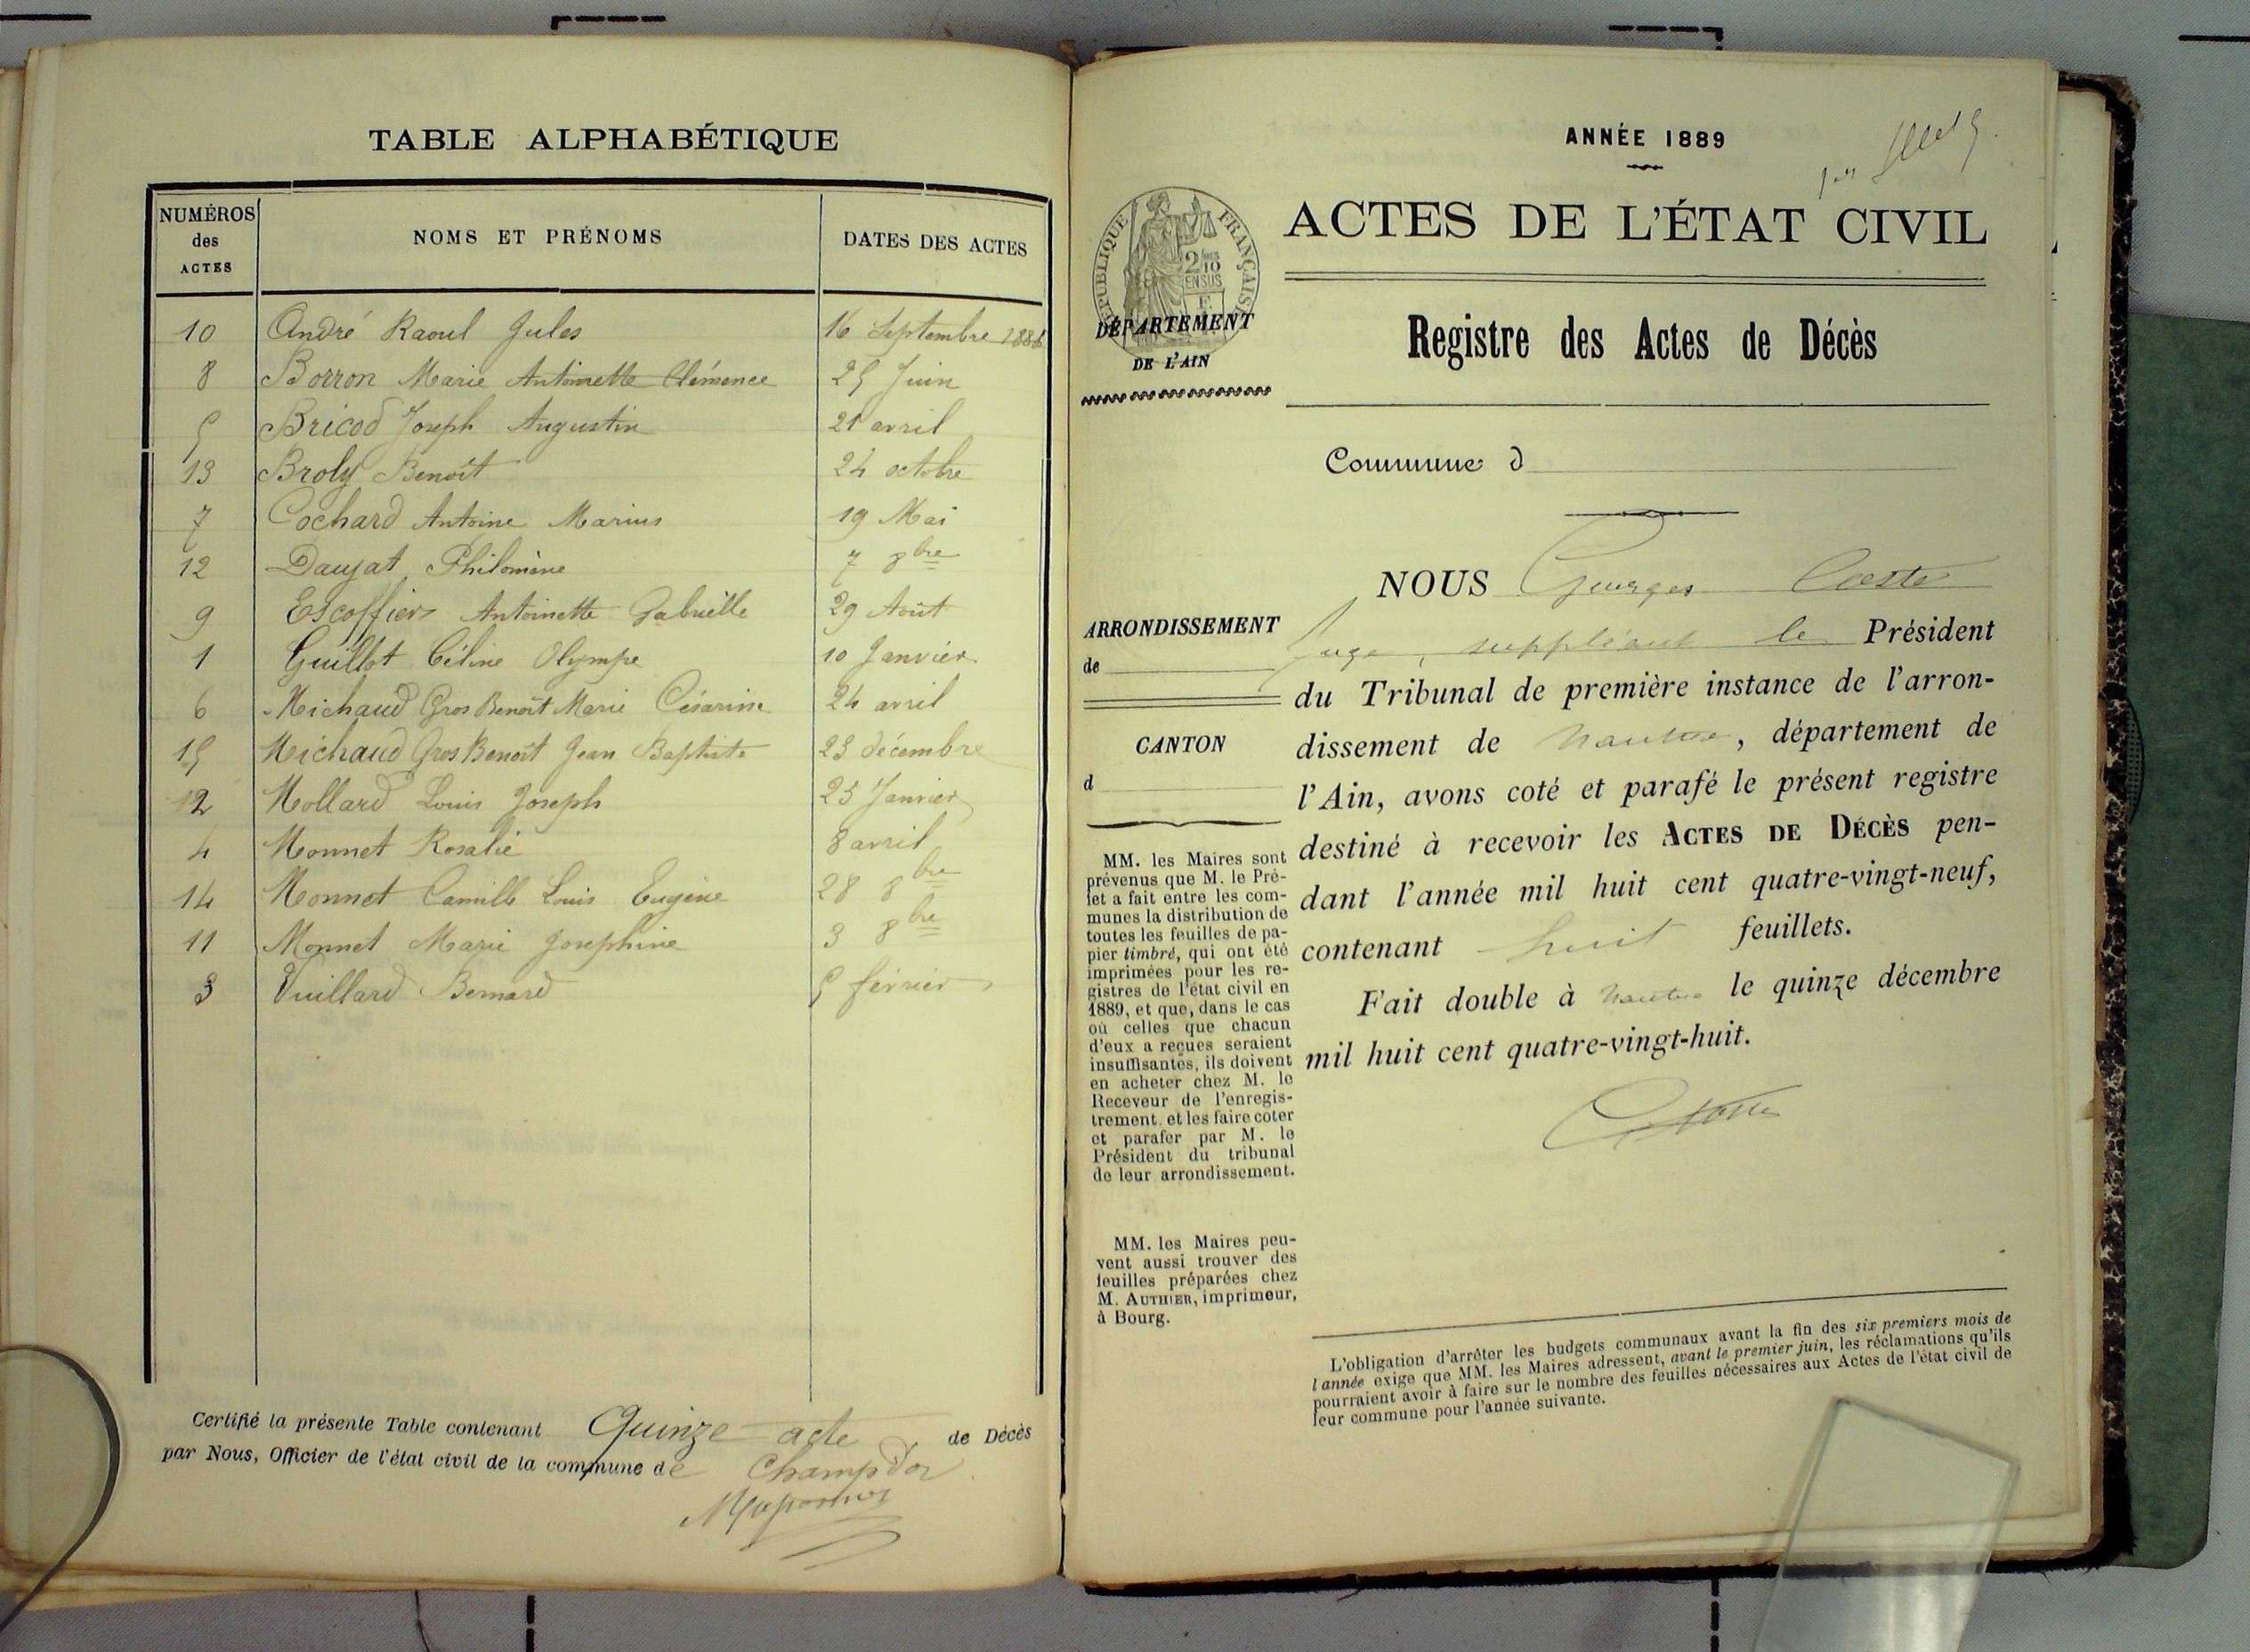 TABLE ALPHABÉTIQUE
NUMÉROS des ACTES NOMS ET PRÉNOMS DATES DES ACTES
10 André Raoul Jules 16 Septembre 1888
8 Borron Marie Antoinette Clémence 25 Juin
5 Bricod Joseph Augustin 21 avril
13 Broly Benoît 24 octobre
7 Cochard Antoine Marius 19 Mai
12 Daujat Philomène 7 8bre
9 Escoffier Antoinette Gabrielle 29 Août
1 Guillot Céline Olympe 10 Janvier
6 Michaud Gros Benoît Marie Césarine 24 avril
15 Michaud Gros Benoît Jean Baptiste 23 décembre
12 Mollard Louis Joseph 25 Janvier
4 Monnet Rosalie 8 avril
14 Monnet Camille Louis Eugène 28 8bre
11 Monnet Marie Joséphine 3 8bre
3 Vuillard Bernard 5 février
Certifié la présente Table contenant Quinze acte de Décès
par Nous, Officier de l'état civil de la commune de Champdor
ANNÉE 1889
ACTES DE L'ÉTAT CIVIL
RÉPUBLIQUE FRANÇAISE
2/10 EN SUS
DÉPARTEMENT
DE L'AIN
Registre des Actes de Décès
Commune d
ARRONDISSEMENT
de
CANTON
d
MM. les Maires sont
prévenus que M. le Pré-
fet a fait entre les com-
munes la distribution de
toutes les feuilles de pa-
pier timbré, qui ont été
imprimées pour les re-
gistres de l'état civil en
1889, et que, dans le cas
où celles que chacun
d'eux a reçues seraient
insuffisantes, ils doivent
en acheter chez M. le
Receveur de l'enregis-
trement. et les faire coter
et parafer par M. le
Président du tribunal
de leur arrondissement.
MM. les Maires peu-
vent aussi trouver des
feuilles préparées chez
M. AUTHIER, imprimeur,
à Bourg.
NOUS Georges Coste
Juge, suppléant le Président
du Tribunal de première instance de l'arron-
dissement de Nantua, département de
l'Ain, avons coté et parafé le présent registre
destiné à recevoir les ACTES DE DÉCÈS pen-
dant l'année mil huit cent quatre-vingt-neuf,
contenant huit feuillets.
Fait double à Nantua le quinze décembre
mil huit cent quatre-vingt-huit.
L'obligation d'arrêter les budgets communaux avant la fin des six premiers mois de
l'année exige que MM. les Maires adressent, avant le premier juin, les réclamations qu'ils
pourraient avoir à faire sur le nombre des feuilles nécessaires aux Actes de l'état civil de
leur commune pour l'année suivante.